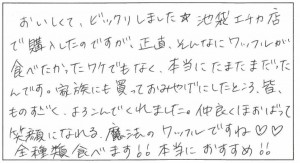 おいしくて、ビックリしました☆池袋エチカ店
で購入したのですが、正直、そんなにワッフルが
食べたかったワケでもなく、本当にたまたまだった
んです。家族にも買っておみやげにしたところ、皆、
ものすごく、よろこんでくれました。仲良くほおばって
笑顔になれる、魔法のワッフルですね♡♡
全種類食べます!!本当におすすめ!!